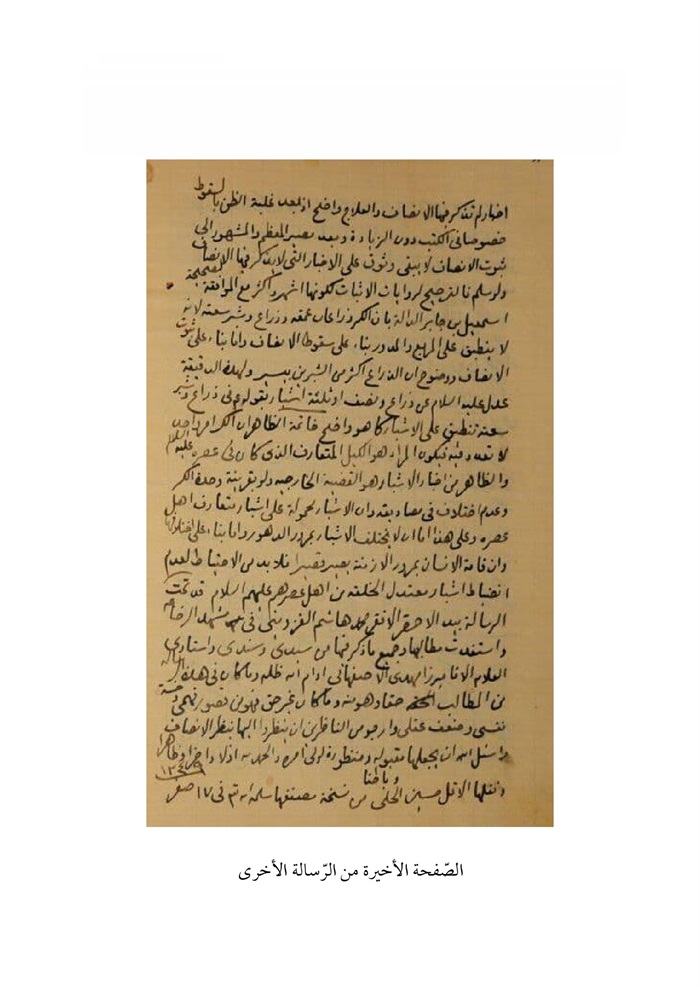 اخبار لم تذكر فيها الانصاف والعلاج واضح اذ بعد غلبة الظن بالسقوط
خصوصا في الكتب دون الزيادة وبعد مصير المعظم والمشهور الى
ثبوت الانصاف لا يبقى وثوق على الاخبار التي لا يذكر فيها الانصاف
ولو سلم فالترجيح لروايات الاثبات لكونها اشهر واكثر مع الموافقة لصحيحة
اسمعيل بن جابر الدالة بان الكر ذراعان عمقه وذراع وشبر سعته لانه
لا ينطبق على المربع والمدور بناء على سقوط الانصاف واما بناء على ثبوت
الانصاف ووضوح ان الذراع اكثر من الشبرين بيسير ولهذه الدقيقة
عدل عليه السلام عن ذراع ونصف او ثلثة اشبار بقوله في ذراع وشبر
سعته تنطبق على الاشبار كما هو واضح خاتمة الظاهر ان الكر امر واحد
لا تعدد فيه فيكون المراد هو الكيل المتعارف الذي كان في عصره عليه السلام
والظاهر من اخبار الاشبار هو القضية الخارجية ولو بقرينة وحدة الكر
وعدم اختلاف في مصاديقه وان الاشبار محمولة على اشبار متعارف اهل
عصره وعلى هذا اما ان لا يختلف الاشبار بمرور الدهور واما بناء على اختلافها
وان قامة الانسان بمرور الازمنة يصير قصيرا فلا بد من الاحتياط لعدم
انضباط اشبار معتدل الخلقة من اهل عصرهم عليهم السلام قد تمت
الرسالة بيد الاحقر الافقر محمد هاشم القزويني في مشهد الرضا
واستفدت مطالبها وجميع ما ذكر فيها من سيدي وسندي واستادي
العلامة الاقا ميرزا مهدي الاصفهاني ادام الله ظله وما كان في هذه الرسالة
من المطالب حقا وهو منه وما كان غير حق فهو من قصور فهمي وخسة
نفسي وضعف عقلي وارجو من الناظرين ان ينظروا اليها بنظر الانصاف
واسئل الله ان يجعلها مقبولة ومنظورة لولي امره والحمد لله اولا واخرا وظاهرا
وباطنا
ونقلها الاقل حسين الحلي من نسخة مصنفها سلمه الله تم في ١٧ صفر
الصّفحة الأخيرة من الرّسالة الأخرى